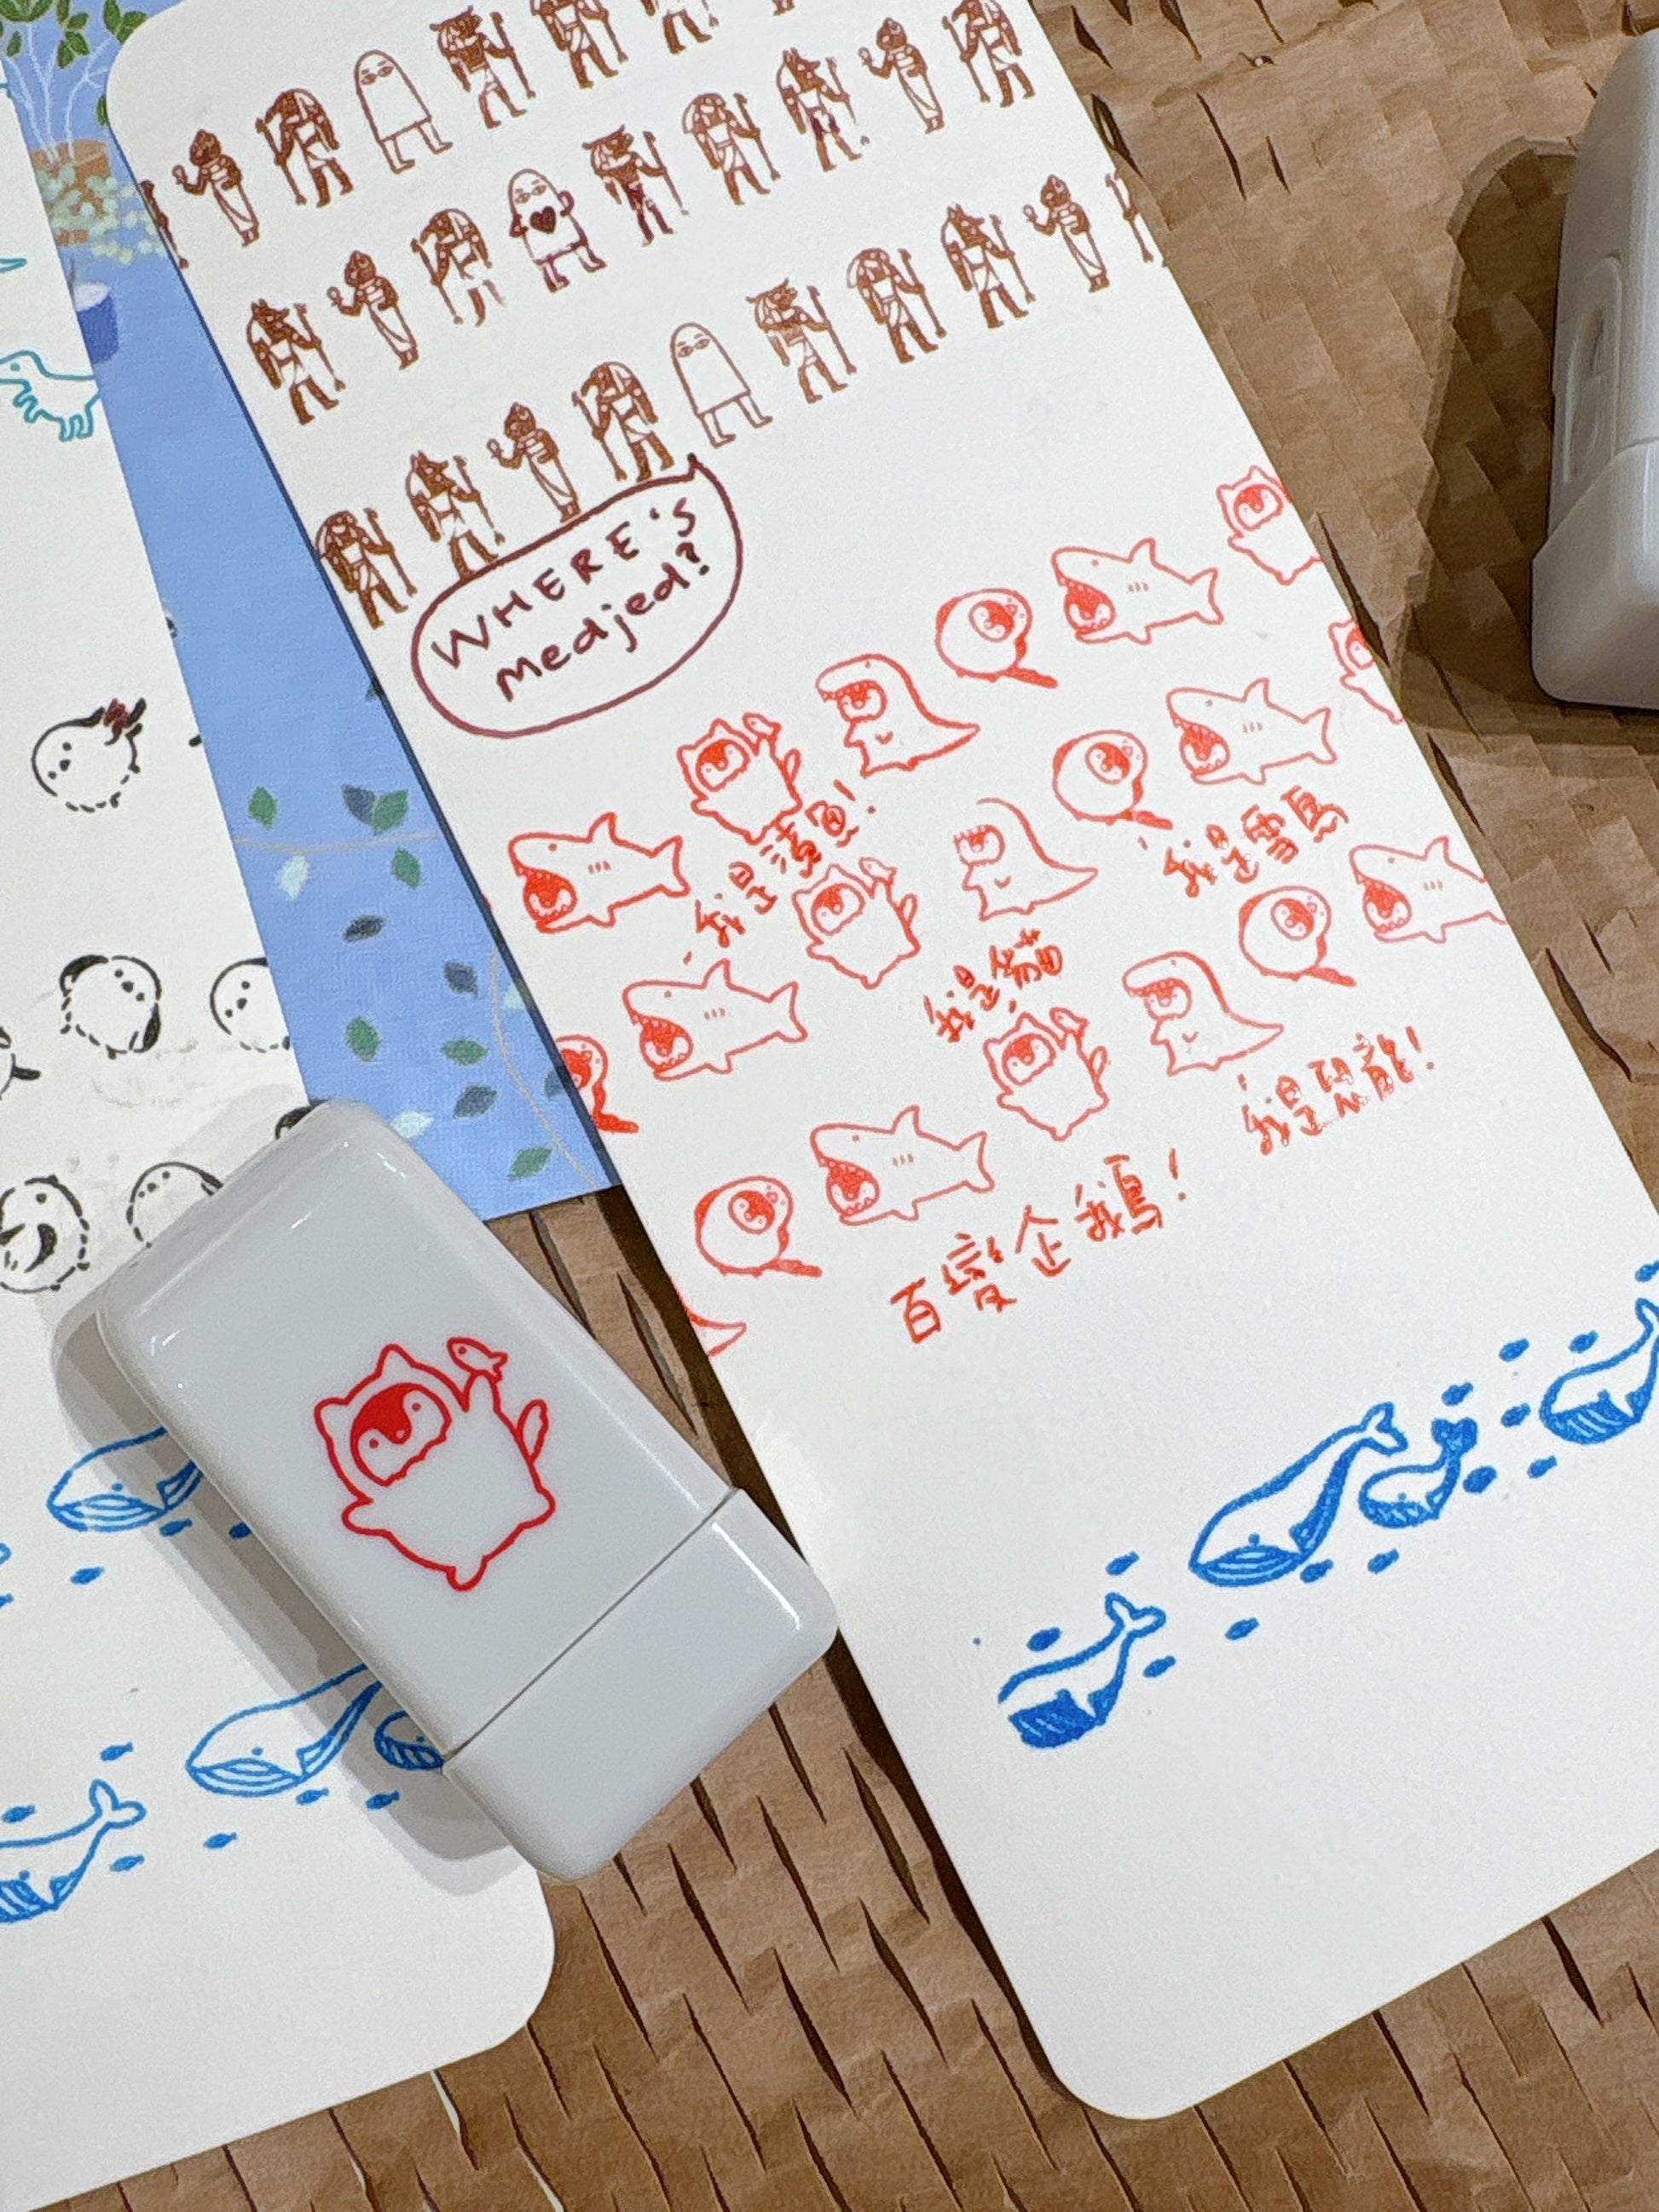 WHERE'S
medjed?
我是鯊魚!
我是雪鳥
我是貓
我是恐龍!
百變企鵝!